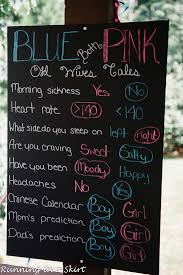 BLUE Both PINK
Old Wives Tales
Morning sickness Yes No
Heart rate >140 <140
What side do you sleep on left right
Are you craving Sweet Salty
Have you been Moody Happy
Headaches No Yes
Chinese Calendar Boy Girl
Mom's prediction Boy Girl
Dad's prediction Boy Girl
Running in a Skirt